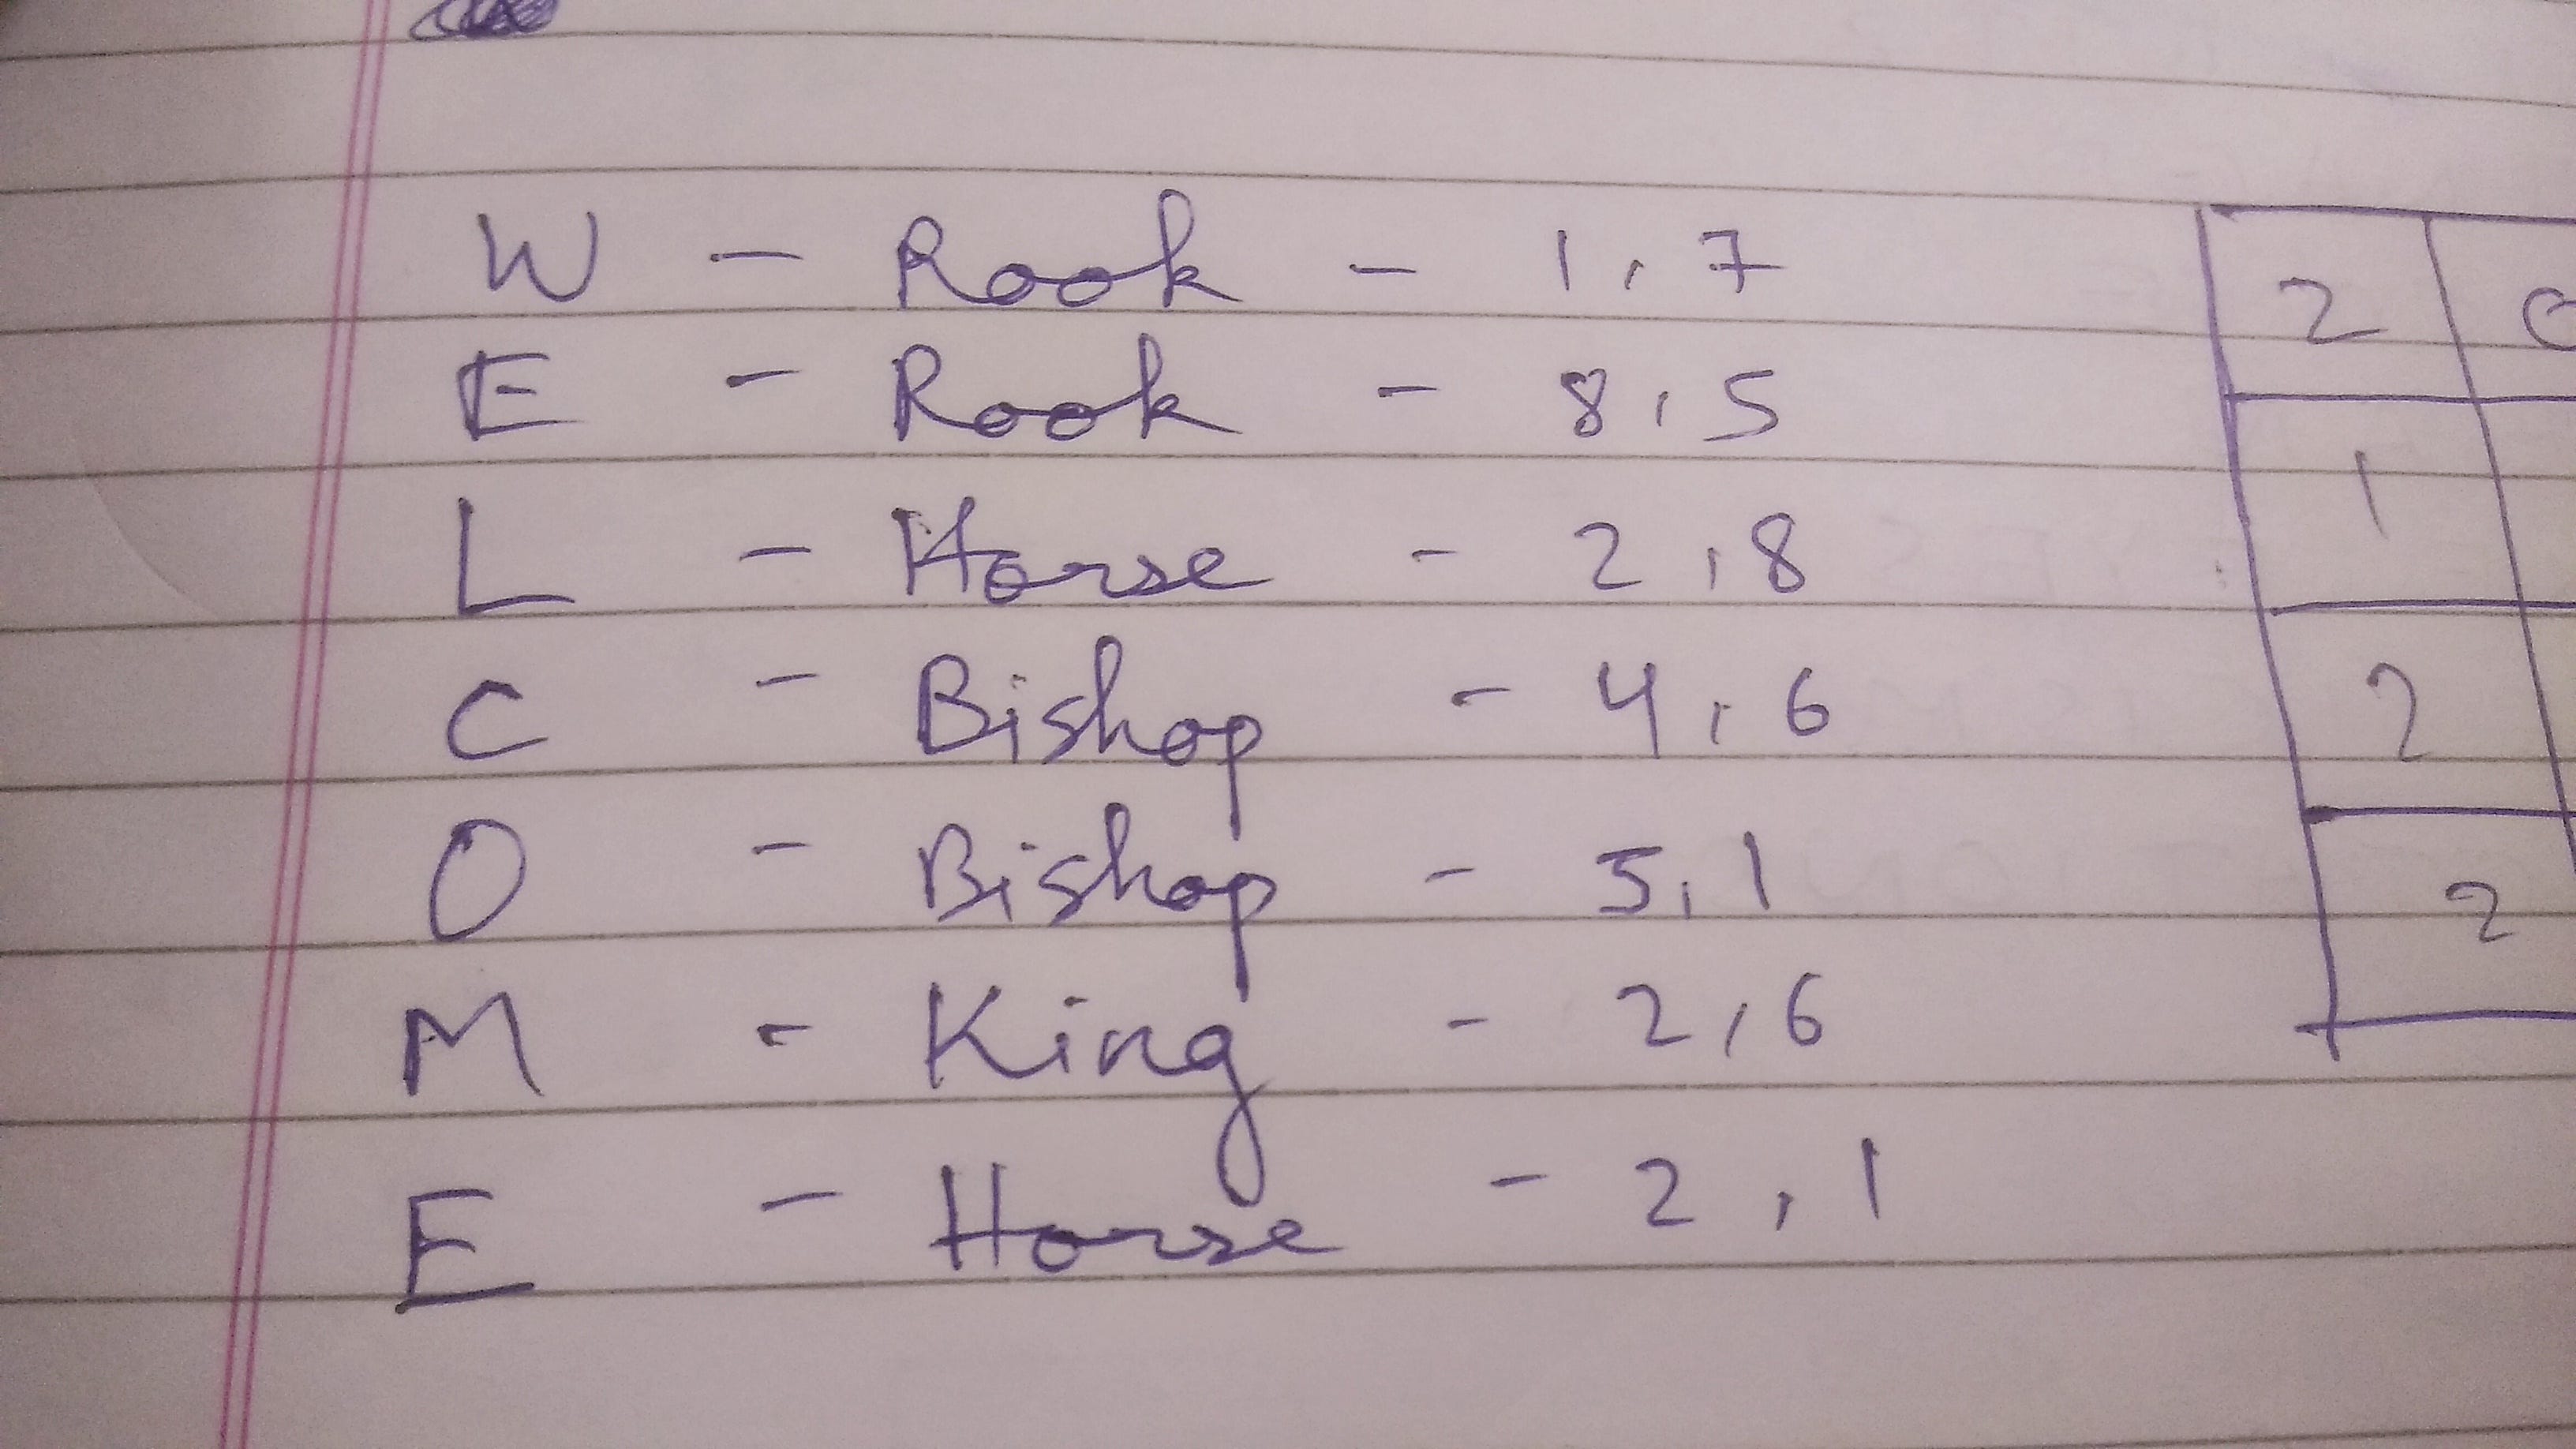 W - Rook - 1, 7
E - Rook - 8, 5
L - Horse - 2, 8
C - Bishop - 4, 6
O - Bishop - 5, 1
M - King - 2, 6
E - Horse - 2, 1
2
1
2
2